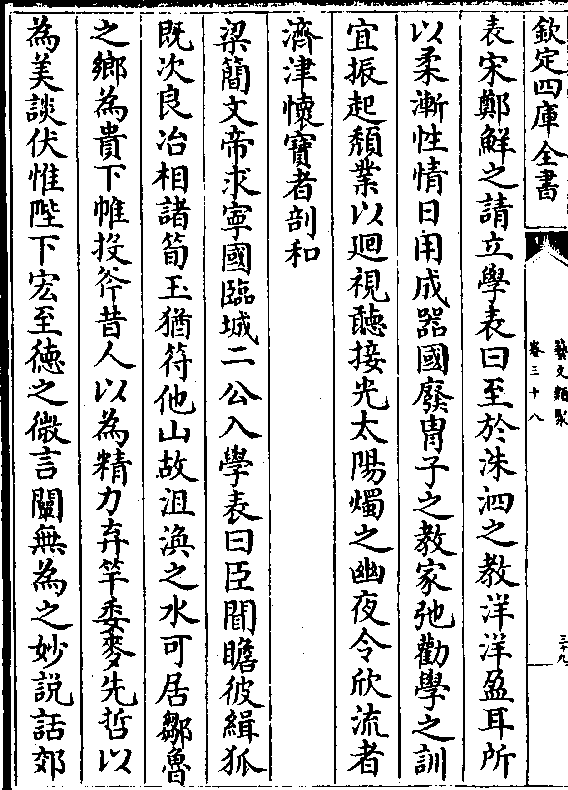 欽定四庫全書
藝文類聚
卷三十八
三十九
表宋鄭鮮之請立學表曰至於洙泗之教洋洋盈耳所
以柔漸性情日用成器國廢胄子之教家弛勸學之訓
宜振起頹業以迴視聽接光太陽燭之幽夜令欣流者
濟津懷寶者剖和
梁簡文帝求寧國臨城二公入學表曰臣聞瞻彼緝狐
既次良冶相諸筍玉猶符他山故沮渙之水可居鄒魯
之鄉為貴下帷投斧昔人以為精力弃竿委麥先哲以
為美談伏惟陛下宏至徳之微言闡無為之妙説話郊